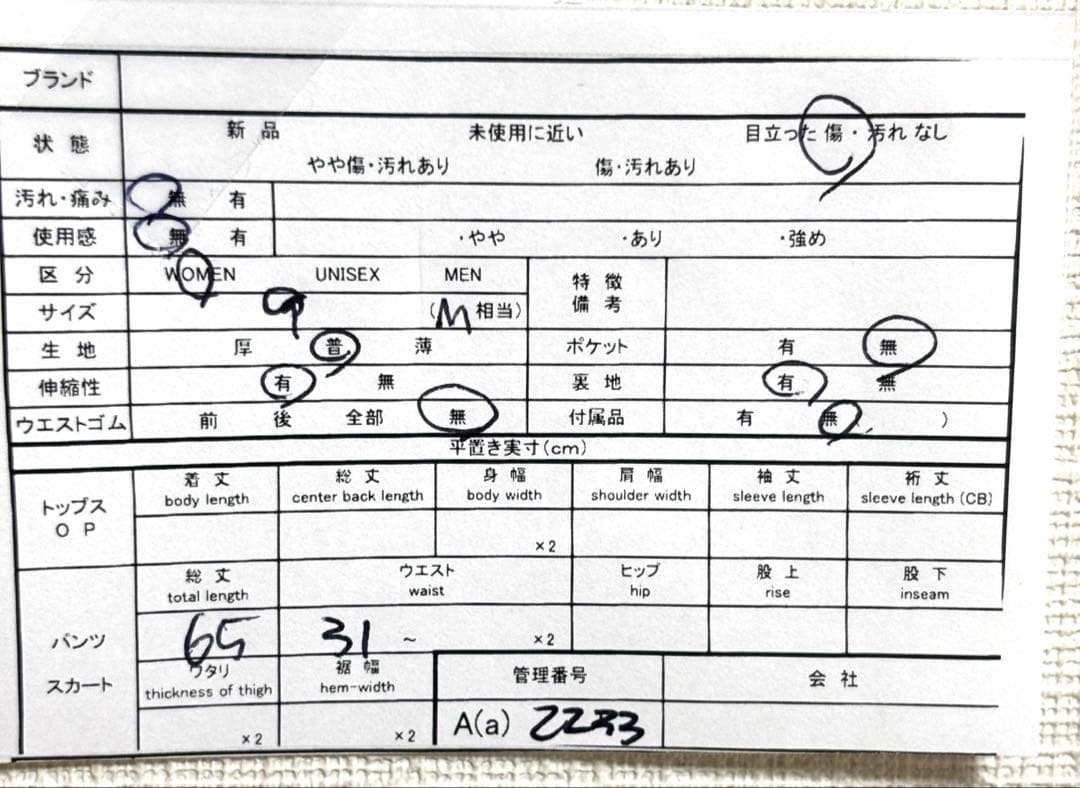 ブランド
状態 新品 未使用に近い 目立った傷・汚れなし
やや傷・汚れあり 傷・汚れあり
汚れ・痛み 無 有
使用感 無 有 ・やや ・あり ・強め
区分 WOMEN UNISEX MEN 特徴
備考
サイズ 9 (M相当)
生地 厚 普 薄 ポケット 有 無
伸縮性 有 無 裏地 有 無
ウエストゴム 前 後 全部 無 付属品 有 無 )
平置き実寸(cm)
トップス
OP
着丈 総丈 身幅 肩幅 袖丈 裄丈
body length center back length body width shoulder width sleeve length sleeve length (CB)
×2
パンツ
スカート
総丈 ウエスト ヒップ 股上 股下
total length waist hip rise inseam
65 31 ~ ×2
ワタリ 裾幅 管理番号 会社
thickness of thigh hem-width
×2 ×2 A(a) 2233